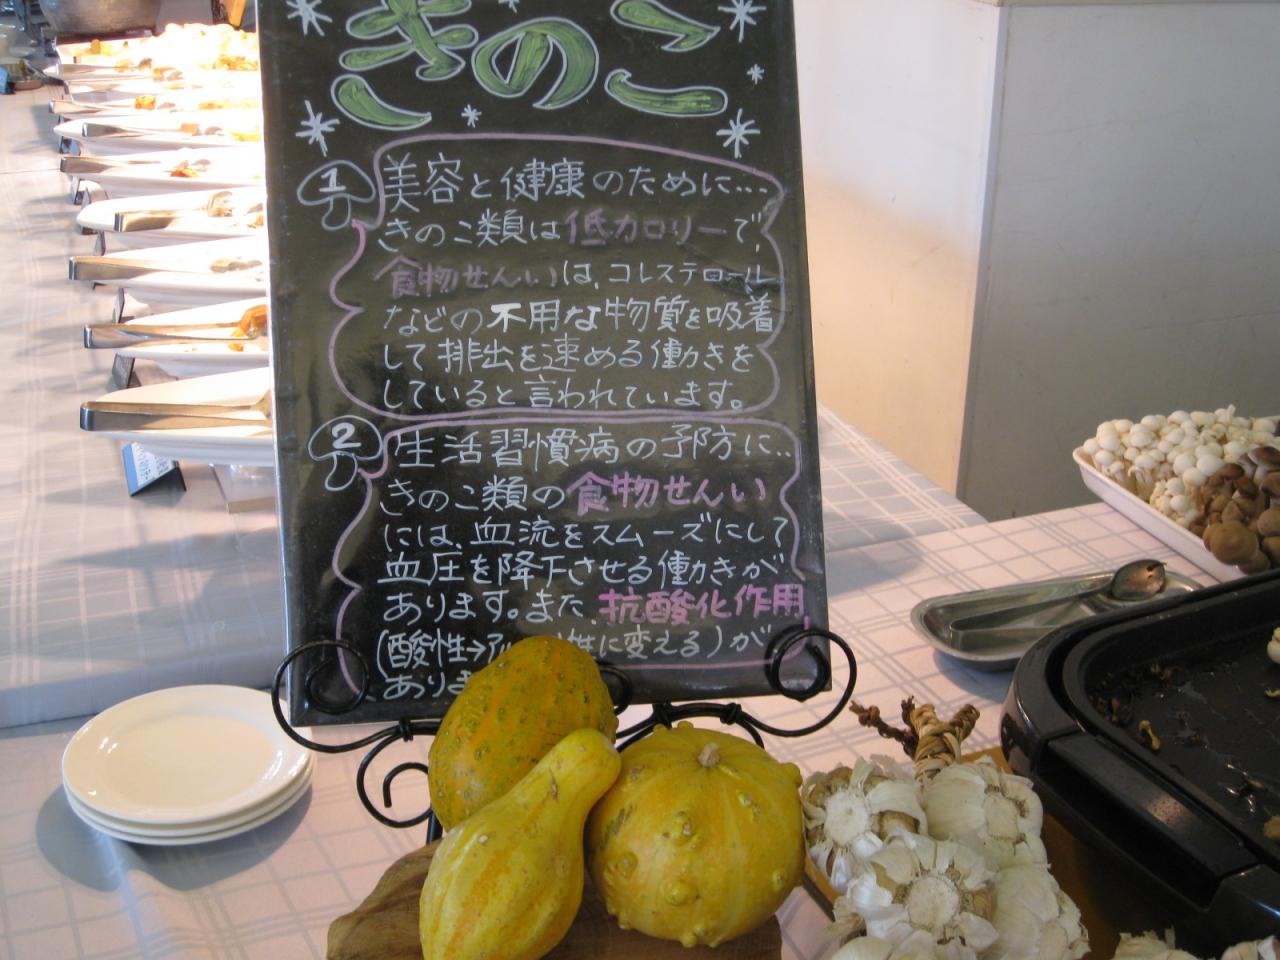 きのこ
1 美容と健康のために…
きのこ類は低カロリーで、
食物せんいは、コレステロール
などの不用な物質を吸着
して排出を速める働きを
していると言われています。
2 生活習慣病の予防に..
きのこ類の食物せんい
には、血流をスムーズにして
血圧を降下させる働きが
あります。また、抗酸化作用
(酸性→アル 性に変える)が
あります